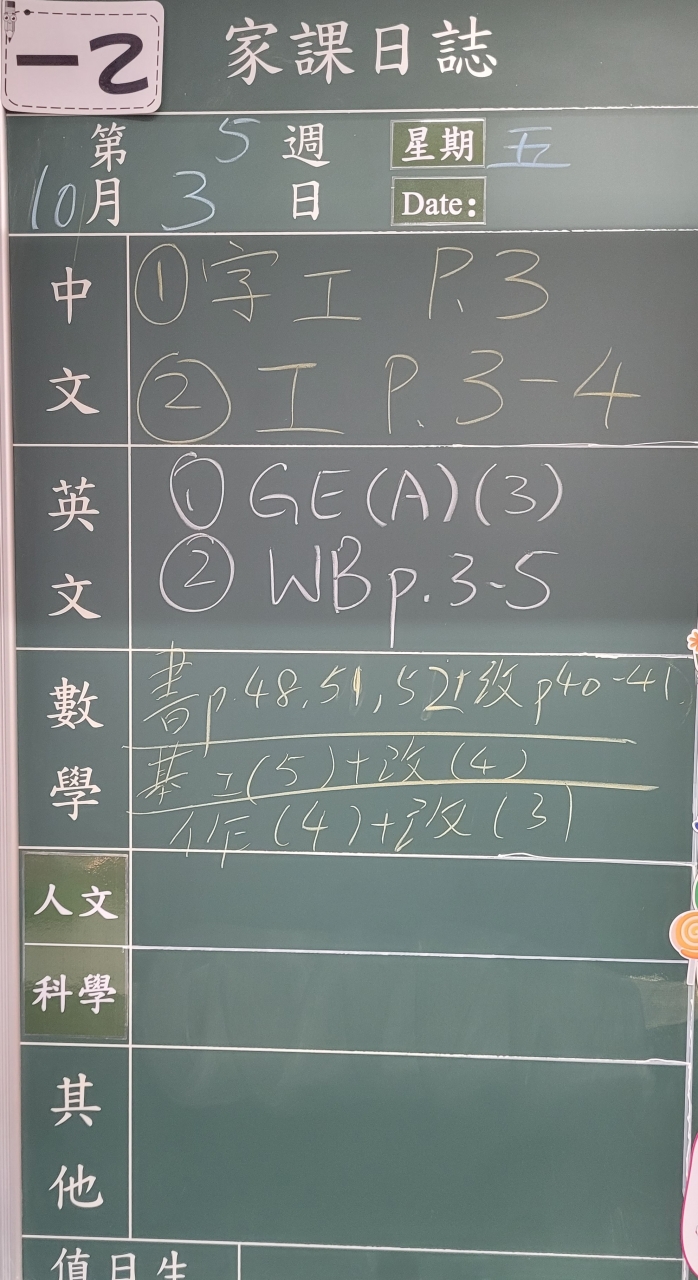 一乙
家課日誌
第 5 週 星期 五
10月 3 日 Date:
中文
①字工 P.3
②工 P.3-4
英文
① GE(A)(3)
② WB p.3-5
數學
書p.48,51,52+改p40-41
基工(5)+改(4)
作(4)+改(3)
人文
科學
其他
值日生